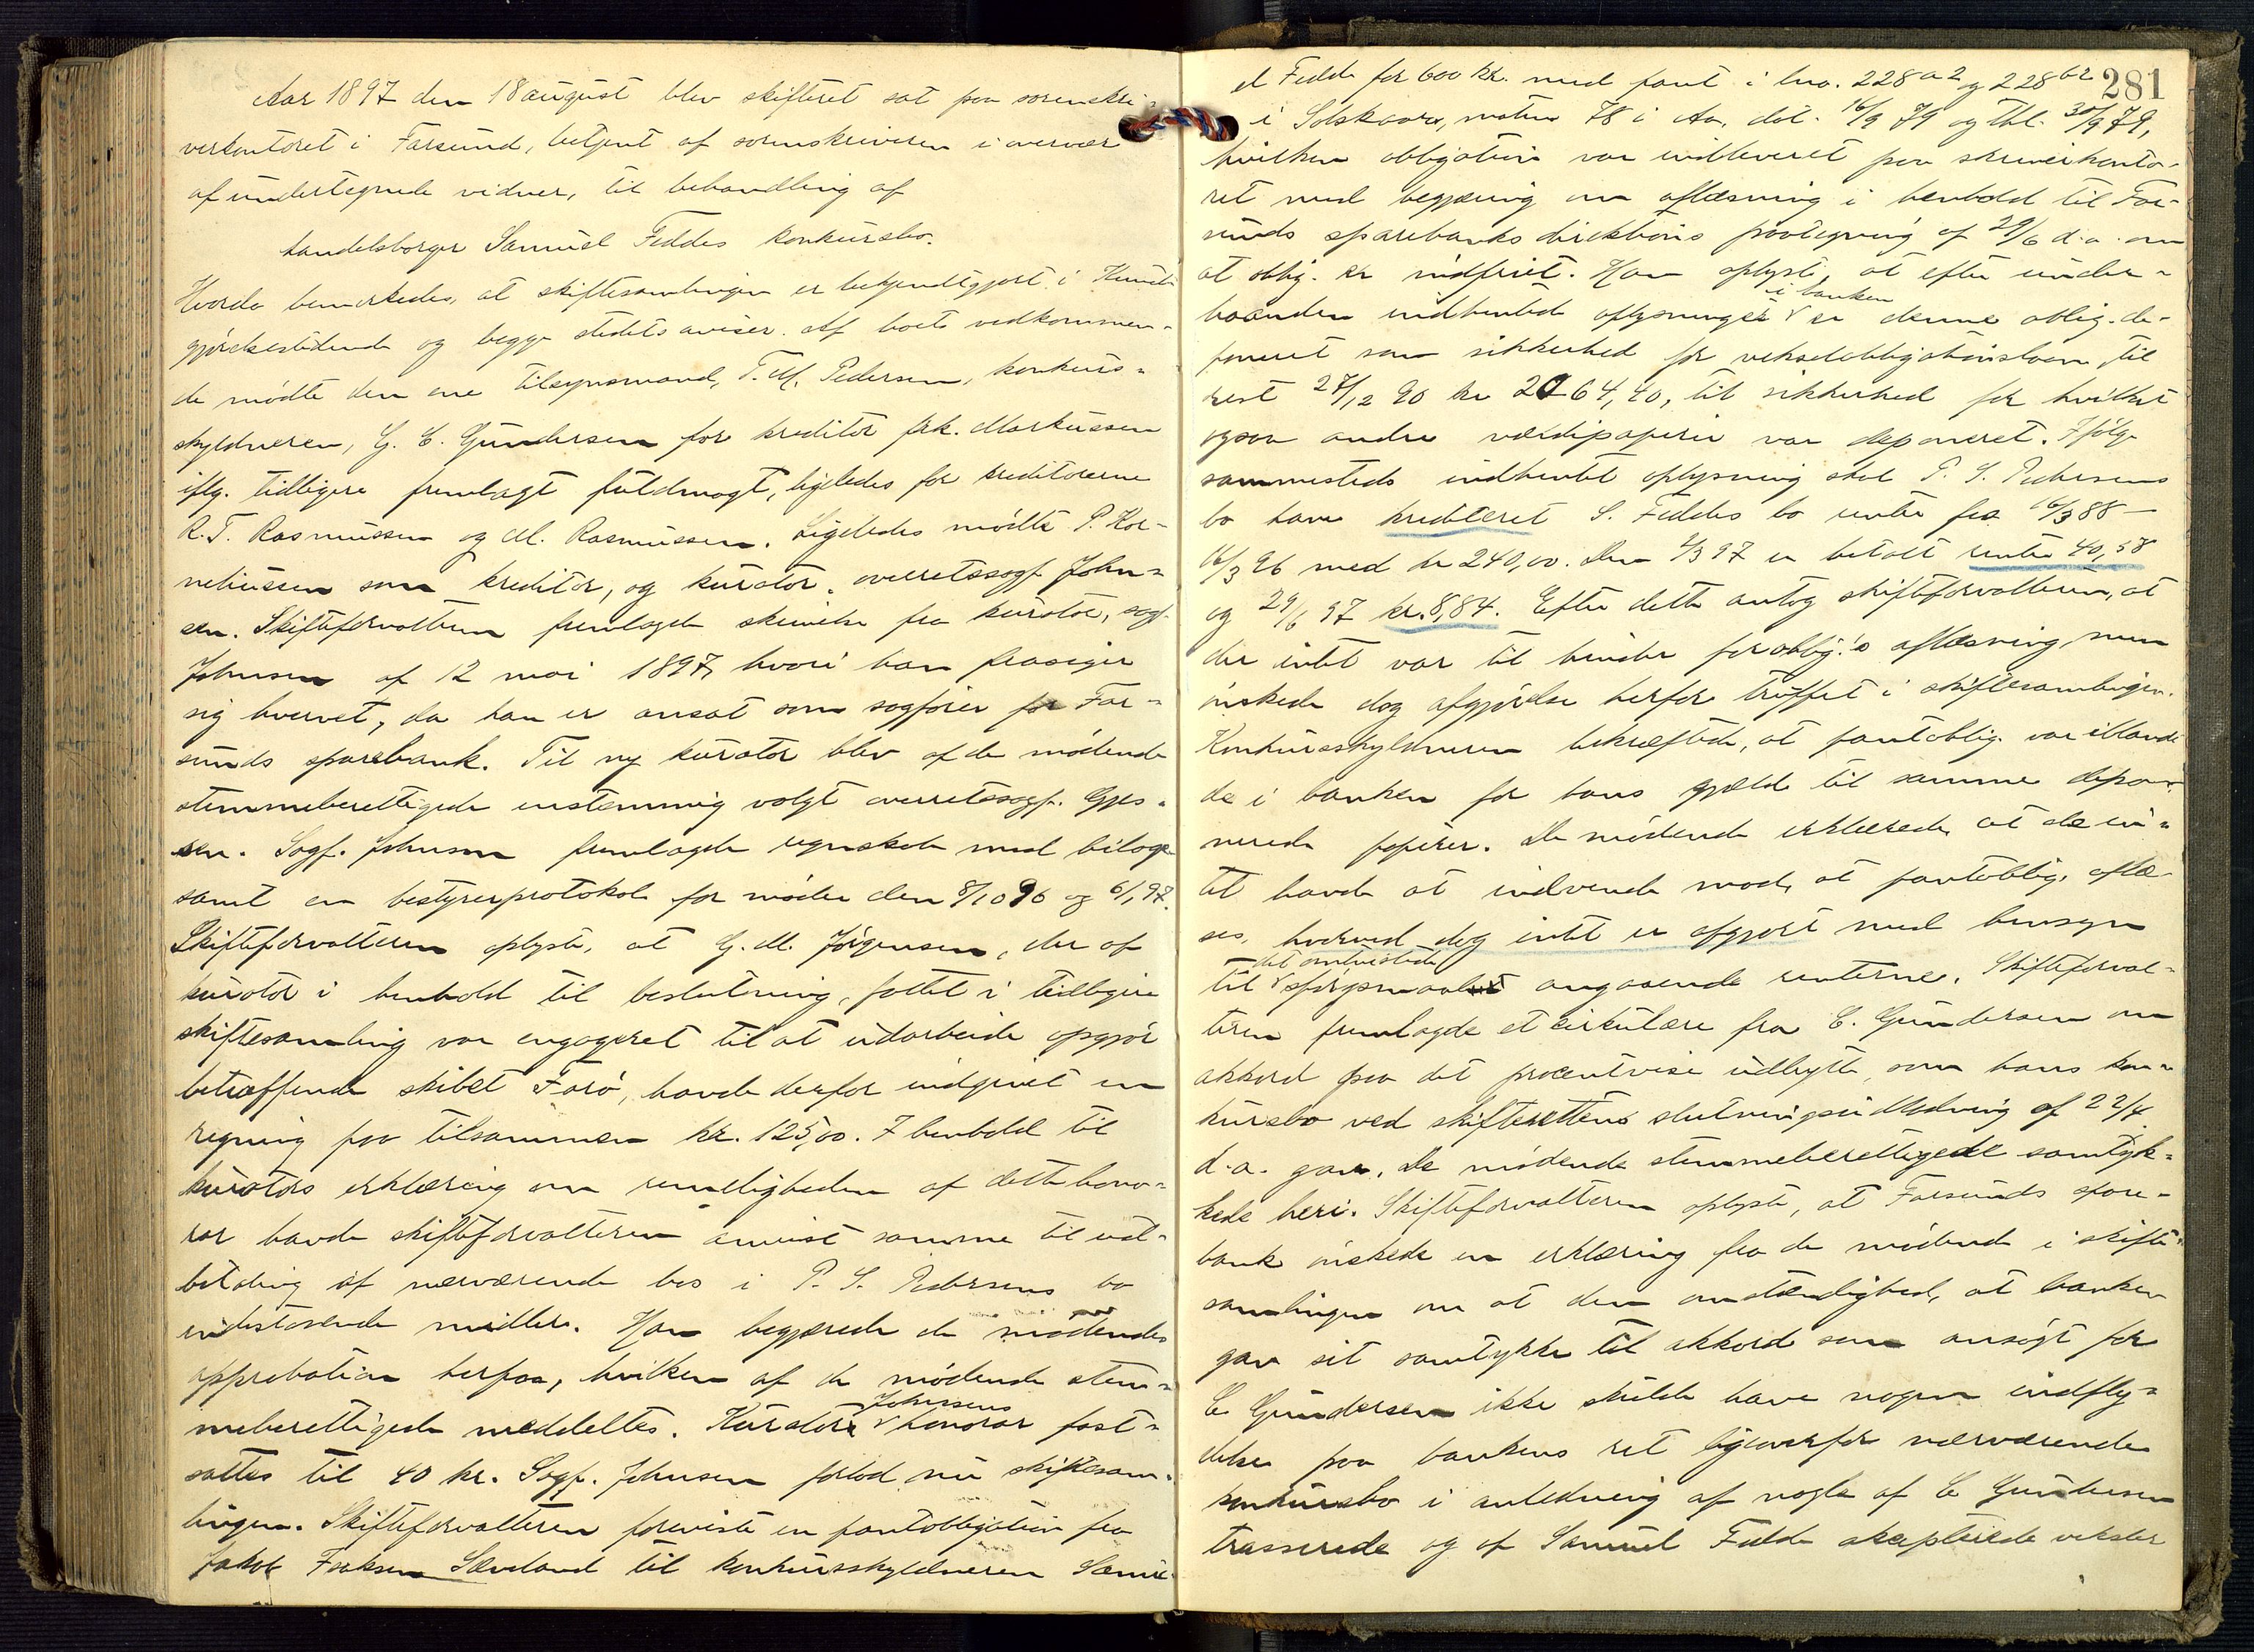 Aar 1897 den 18 august blev skifteret sat paa sorenskri-
verkontoret i Farsund, betjent af sorenskriveren i overvær
af undertegnede vidner, til behandling af
handelsborger Samuel Feddes konkursbo.
Hvorda bemerkedes, at skiftesamlingen er bekjendtgjort i Kund-
gjørelsestidende og begge stedets aviser. Af boets vedkommen-
de mødte den ene tilsynsmand, T. M. Pedersen, konkurs-
skyldneren, G. C. Gundersen for kreditor frk. Markussen
iflg. tidligere fremlagt fuldmagt, ligeledes for kreditorerne
R. T. Rasmussen og M. Rasmussen. Ligeledes mødte P. Kor-
neliussen som kreditor, og kurator, overretssagf. John-
sen. Skifteforvalteren fremlagde skrivelse fra kurator, sagf.
Johnsen af 12 mai 1897, hvori han frasiger
sig hvervet, da han er ansat som sagfører for Far-
sunds sparebank. Til ny kurator blev af de mødende
stemmeberettigede enstemmig valgt overretssagf. Gjes-
sen. Sagf. Johnsen fremlagde regnskab med bilage
samt en bestyrerprotokol for møder den 8/10 96 og 6/1 97.
Skifteforvalteren oplyste, at G. M. Jørgensen, der af
kurator i henhold til beslutning, fattet i tidligere
skiftesamling var engageret til at udarbeide opgjør
betræffende skibet Farø, havde derfor indgivet en
regning paa tilsammen kr. 125,00. I henhold til
kurators erklæring om rimeligheden af dette hono-
rar havde skifteforvalteren anvist samme til ud-
betaling af nærværende bos i P. S. Pedersens bo
indestaaende midler. Han begjærede de mødendes
approbation herpaa, hvilken af de mødende stem-
meberettigede meddeltes. Kurator Johnsens honorar fast-
sattes til 40 kr. Sagf. Johnsen forlod nu skiftesam-
lingen. Skifteforvalteren foreviste en pantobligation fra
Jakob Isaksen Sævland til konkursskyldneren Samu-
281
el Fedde for 600 kr. med pant i lno. 228 a 2 og 228 b 2
i Solskaar, matno 78 i Aa, dat. 16/9 79 og thl. 30/9 79,
hvilken obligation var indleveret paa skriverkonto-
ret med begjæring om aflæsning i henhold til Far-
sunds sparebanks direktions paategning af 29/6 d. a. om
at oblig. er indfriet. Han oplyste, at efter under-
haanden indhentede oplysninger i banken er denne oblig. de-
poneret som sikkerhed for vekselobligationslaan, til
rest 27/12 90 kr 2064,40, til sikkerhed for hvilket
ogsaa andre værdipapirer var deponeret. Ifølge
sammesteds indhentet oplysning skal P. S. Pedersens
bo have krediteret S. Feddes bo renter fra 16/3 88 –
16/3 96 med kr 240,00. Den 4/3 97 er betalt renter 40,58
og 29/6 97 kr. 8,84. Efter dette antog skifteforvalteren, at
der intet var til hinder for oblig.'s aflæsning, men
ønskede dog afgjørelse herfor truffet i skiftesamlingen.
Konkursskyldneren bekræftede, at pantoblig. var iblandt
de i banken for hans gjæld til samme depo-
nerede papirer. De mødende erklærede, at de in-
tet havde at indvende mod, at pantoblig. aflæ-
ses, hvorved dog intet er afgjort med hensyn
til det omtvistede spørgsmaal angaaende renterne. Skifteforval-
teren fremlagde et cirkulære fra C. Gundersen om
akkord paa det procentvise udbytte, som hans kon-
kursbo ved skifterettens slutningsudlodning af 22/4
d. a. gav. De mødende stemmeberettigede samtyk-
kede heri. Skifteforvalteren oplyste, at Farsunds spare-
bank ønskede en erklæring fra de mødende i skifte-
samlingen om at den omstændighed, at banken
gav sit samtykke til akkord som ansøgt for
C. Gundersen ikke skulde have nogen indfly-
delse paa bankens ret ligeoverfor nærværende
konkursbo i anledning af nogle af C. Gundersen
trasserede og af Samuel Fedde akcepterede veksler